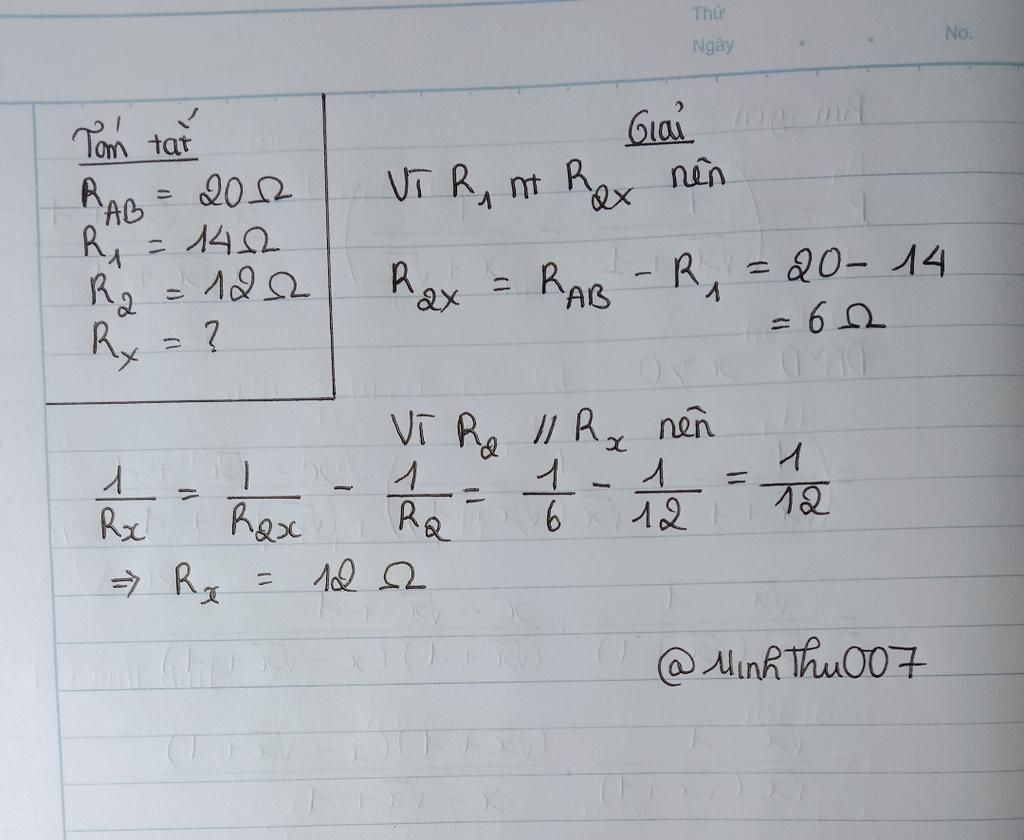 Thứ
Ngày . . No.
Tóm tắt
R_AB = 20 Ω
R_1 = 14 Ω
R_2 = 12 Ω
R_x = ?
Giải
Vì R_1 nt R_2x nên
R_2x = R_AB - R_1 = 20 - 14
= 6 Ω
Vì R_2 // R_x nên
1/R_x = 1/R_2x - 1/R_2 = 1/6 - 1/12 = 1/12
⇒ R_x = 12 Ω
@MinhThu007